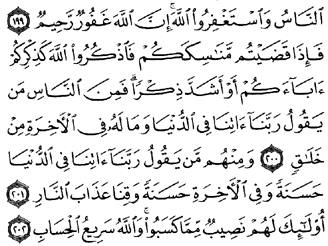 ٱلنَّاسُ وَٱسْتَغْفِرُواْ ٱللَّهَۚ إِنَّ ٱللَّهَ غَفُورٌ رَّحِيمٌ ١٩٩
فَإِذَا قَضَيْتُم مَّنَٰسِكَكُمْ فَٱذْكُرُواْ ٱللَّهَ كَذِكْرِكُمْ
ءَابَآءَكُمْ أَوْ أَشَدَّ ذِكْرًاۗ فَمِنَ ٱلنَّاسِ مَن
يَقُولُ رَبَّنَآ ءَاتِنَا فِى ٱلدُّنْيَا وَمَا لَهُۥ فِى ٱلْأَخِرَةِ مِنْ
خَلَٰقٍ ٢٠٠ وَمِنْهُم مَّن يَقُولُ رَبَّنَآ ءَاتِنَا فِى ٱلدُّنْيَا
حَسَنَةً وَفِى ٱلْأَخِرَةِ حَسَنَةً وَقِنَا عَذَابَ ٱلنَّارِ ٢٠١
أُوْلَٰٓئِكَ لَهُمْ نَصِيبٌ مِّمَّا كَسَبُواْۚ وَٱللَّهُ سَرِيعُ ٱلْحِسَابِ ٢٠٢